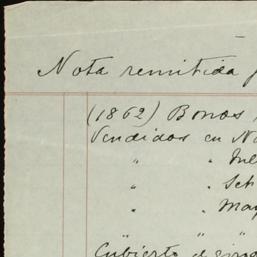 Nota remitida p
(1862) Bonos
Vendidos en N
" "
" " Set
" " May
" "
Cubierto d